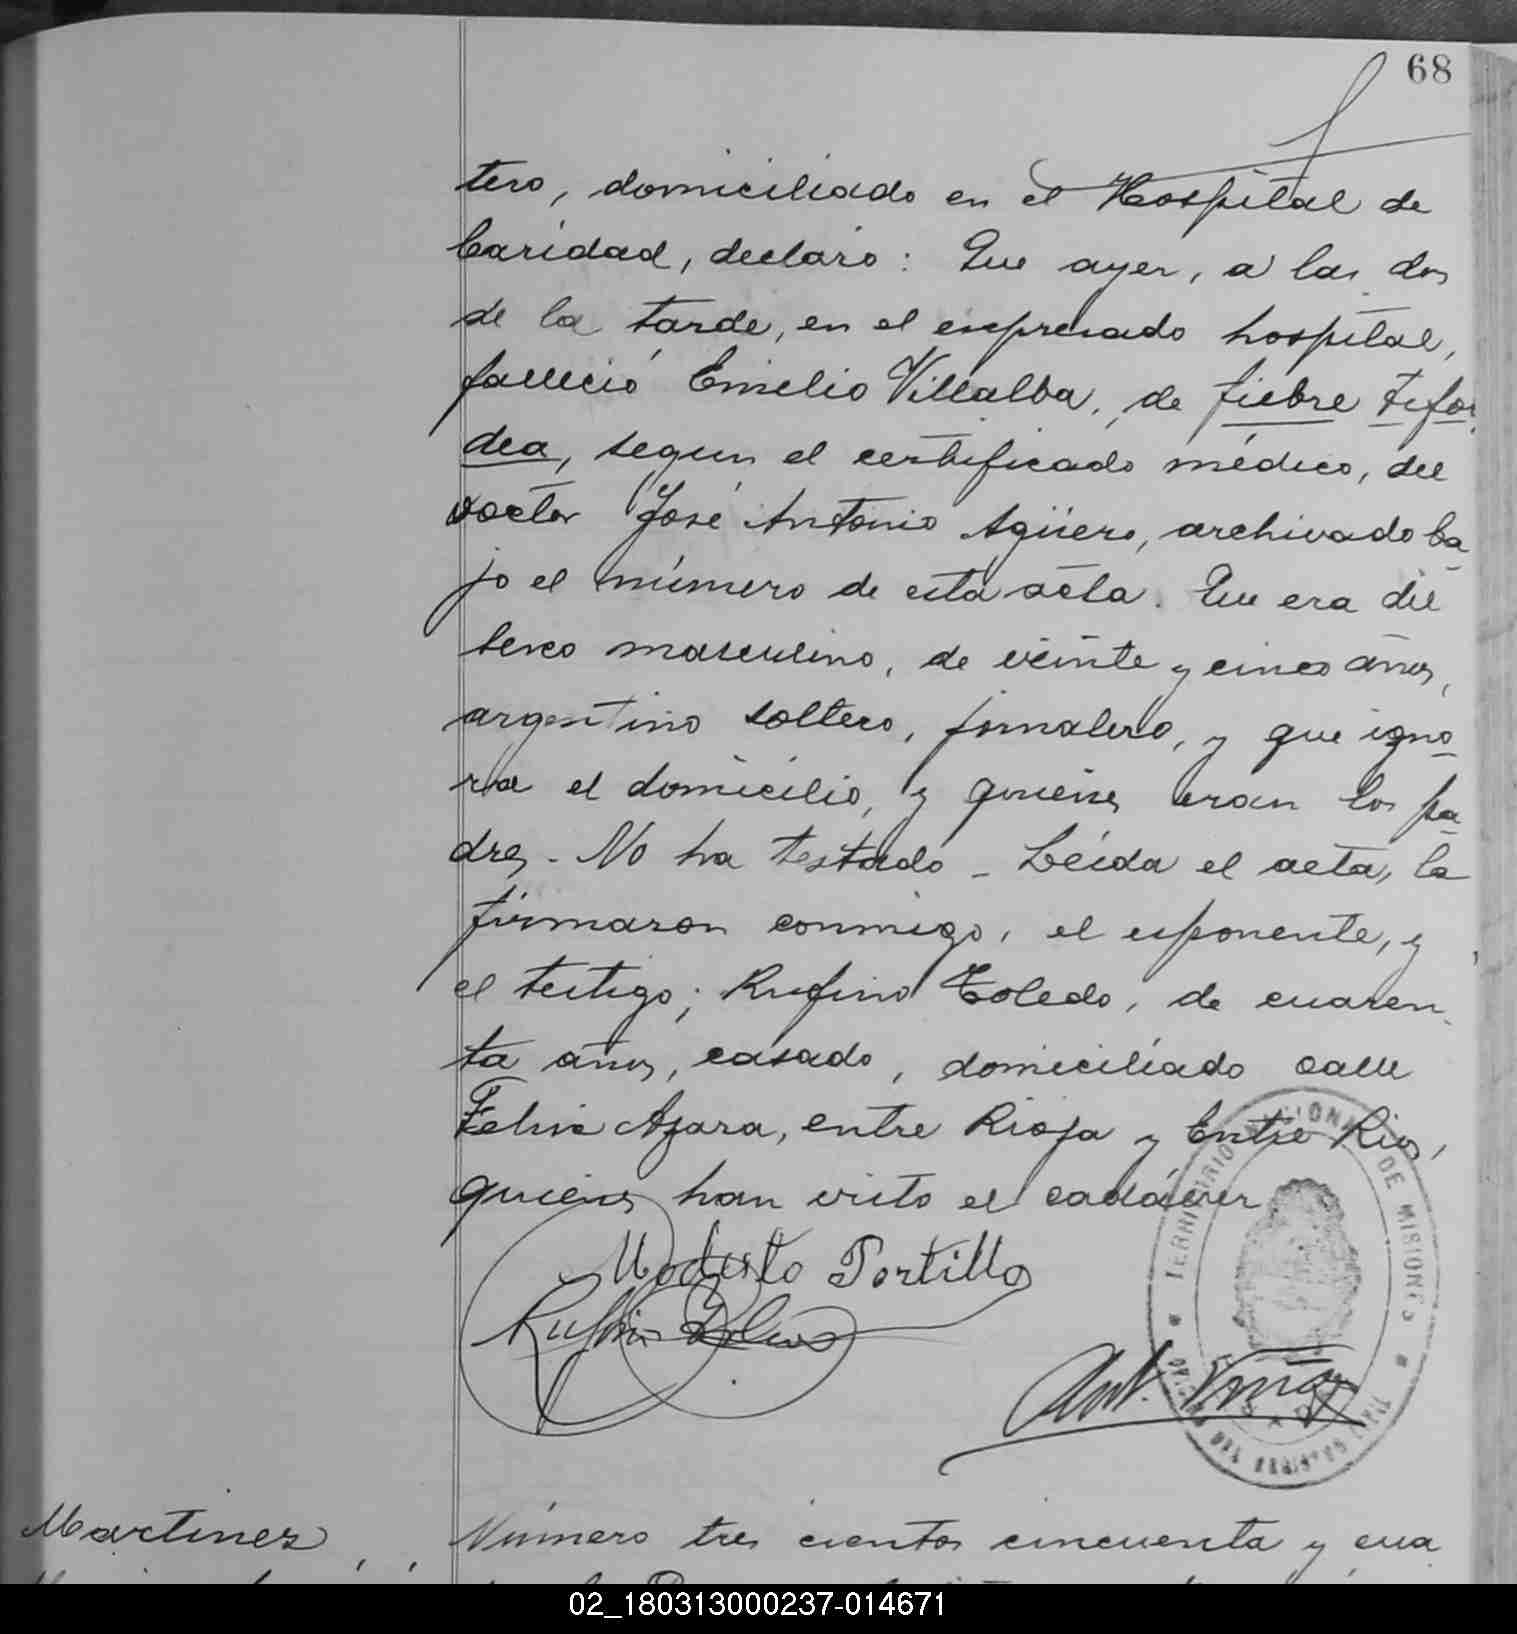 68
tero, domiciliado en el Hospital de
Caridad, declaró: Que ayer, a las dos
de la tarde, en el expresado hospital,
falleció Emilio Villalba, de fiebre tifoi
dea, segun el certificado médico, del
doctor José Antonio Agüero, archivado ba
jo el número de esta acta. Que era del
sexo masculino, de veinte y cinco años,
argentino soltero, jornalero, y que igno
ra el domicilio, y quienes eran los pa
dres - No ha testado - Leída el acta, la
firmaron conmigo, el exponente, y
el testigo; Rufino Toledo, de cuaren
ta años, casado, domiciliado calle
Felix Azara, entre Rioja y Entre Rios,
quienes han visto el cadáver
Modesto Portillo
Rufino Toledo
TERRITORIO NACIONAL DE MISIONES
Martinez
Número tres cientos cincuenta y cua
02_180313000237-014671